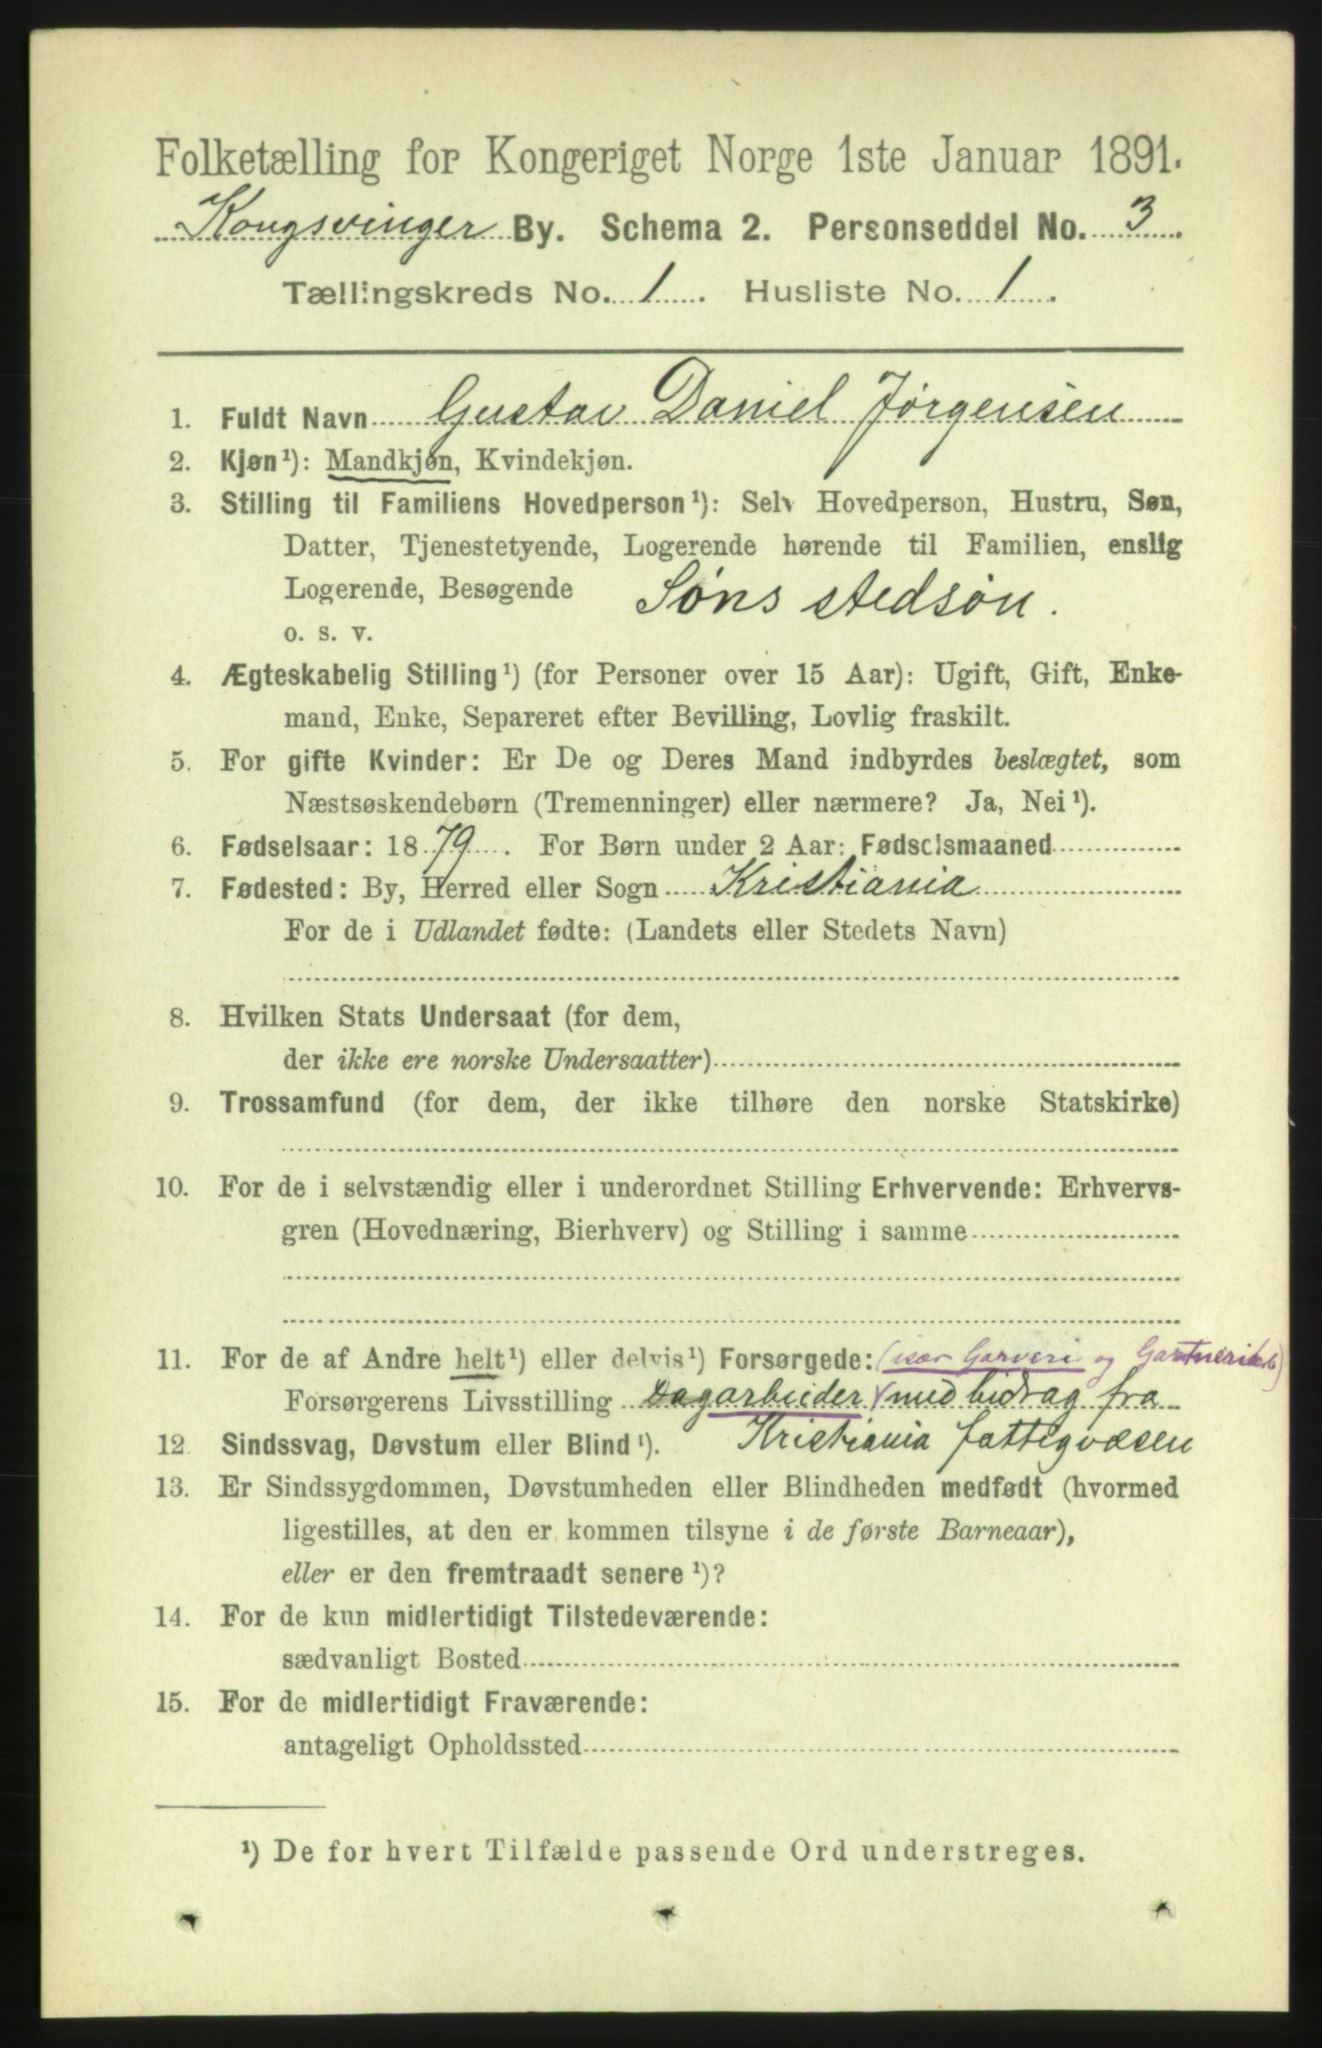 Folketælling for Kongeriget Norge 1ste Januar 1891.
Kongsvinger By. Schema 2. Personseddel No. 3.
Tællingskreds No. 1. Husliste No. 1.
1. Fuldt Navn Gustav Daniel Jørgensen
2. Kjøn¹): Mandkjøn, Kvindekjøn.
3. Stilling til Familiens Hovedperson¹): Selv Hovedperson, Hustru, Søn,
Datter, Tjenestetyende, Logerende hørende til Familien, enslig
Logerende, Besøgende Søns stedsøn.
o. s. v.
4. Ægteskabelig Stilling¹) (for Personer over 15 Aar): Ugift, Gift, Enke-
mand, Enke, Separeret efter Bevilling, Lovlig fraskilt.
5. For gifte Kvinder: Er De og Deres Mand indbyrdes beslægtet, som
Næstsøskendebørn (Tremenninger) eller nærmere? Ja, Nei¹).
6. Fødselsaar: 1879. For Børn under 2 Aar: Fødselsmaaned
7. Fødested: By, Herred eller Sogn Kristiania
For de i Udlandet fødte: (Landets eller Stedets Navn)
8. Hvilken Stats Undersaat (for dem,
der ikke ere norske Undersaatter)
9. Trossamfund (for dem, der ikke tilhøre den norske Statskirke)
10. For de i selvstændig eller i underordnet Stilling Erhvervende: Erhvervs-
gren (Hovednæring, Bierhverv) og Stilling i samme
11. For de af Andre helt¹) eller delvis¹) Forsørgede: (især Garveri og
Forsørgerens Livsstilling Dagarbeider med bidrag fra
12. Sindssvag, Døvstum eller Blind¹). Kristiania fattigvæsen
13. Er Sindssygdommen, Døvstumheden eller Blindheden medfødt (hvormed
ligestilles, at den er kommen tilsyne i de første Barneaar),
eller er den fremtraadt senere¹)?
14. For de kun midlertidigt Tilstedeværende:
sædvanligt Bosted
15. For de midlertidigt Fraværende:
antageligt Opholdssted
¹) De for hvert Tilfælde passende Ord understreges.